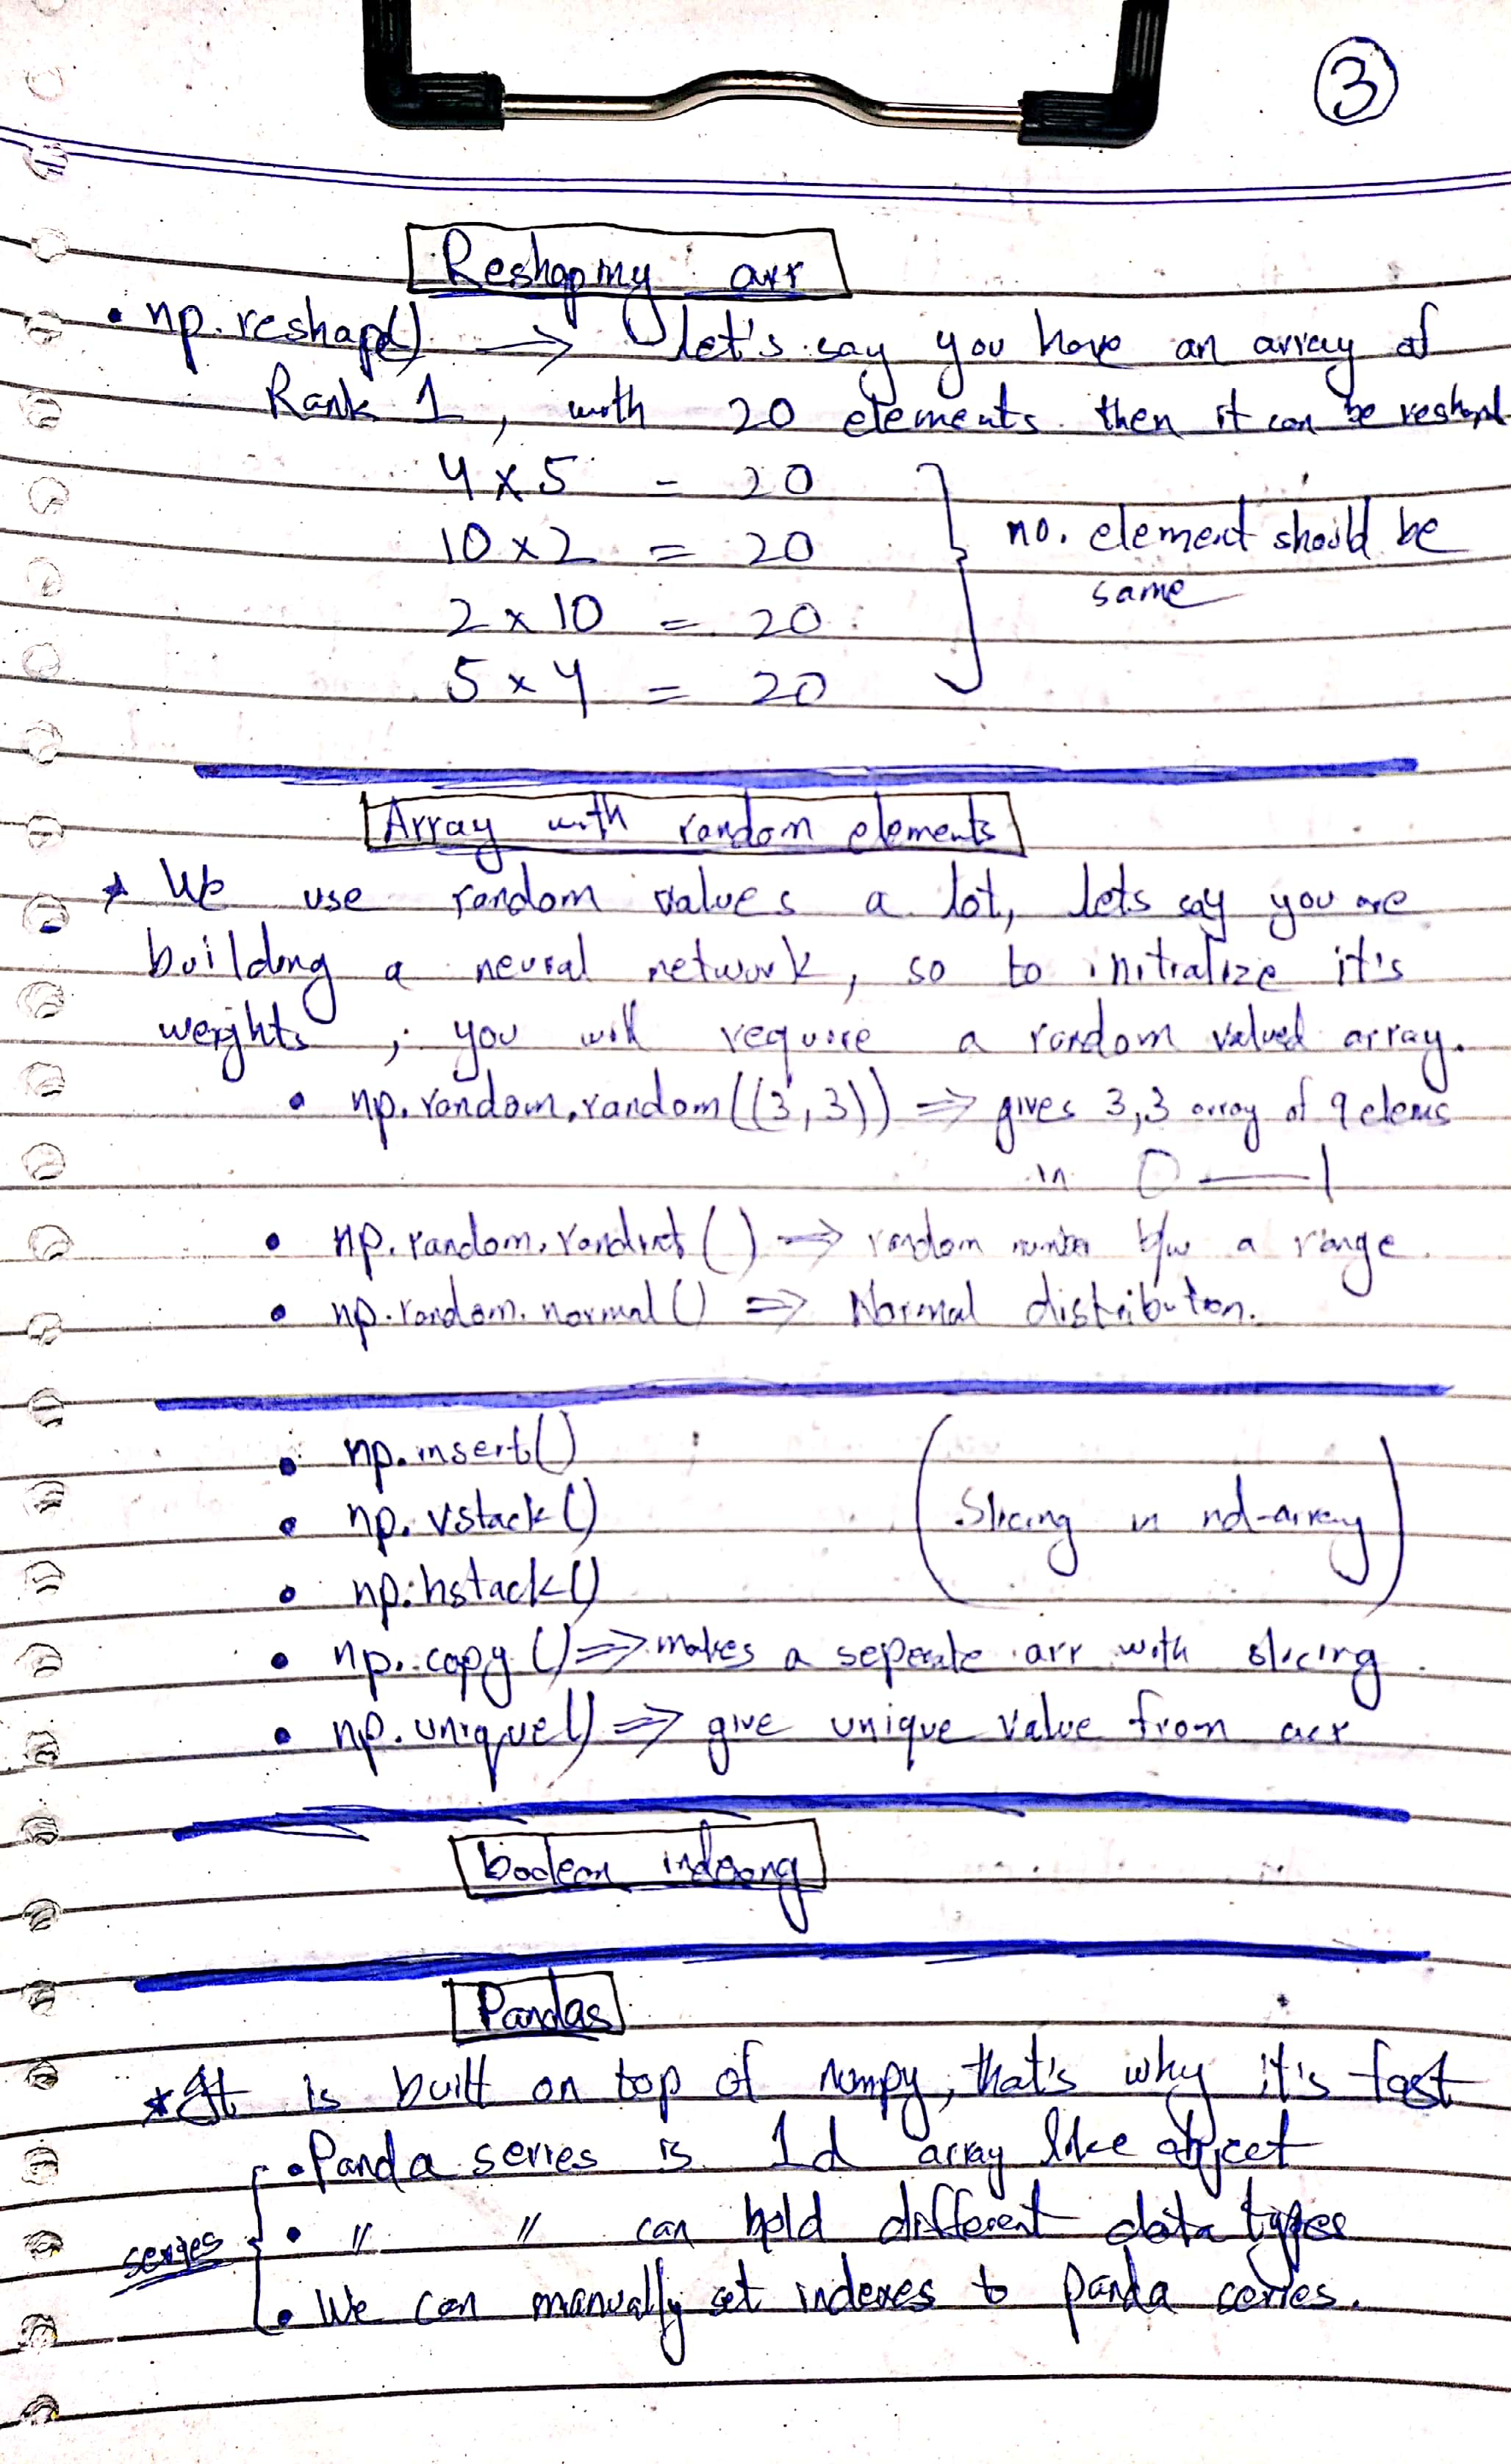 3
Reshaping arr
• np.reshape() → let's say you have an array of
Rank 1, with 20 elements then it can be reshaped
4 x 5 = 20
10 x 2 = 20
no. element should be
same
2 x 10 = 20
5 x 4 = 20
Array with random elements
* We use random values a lot, lets say you are
building a neural network, so to initialize it's
weights, you will require a random valued array.
• np.random.random((3,3)) ⇒ gives 3,3 array of 9 elems
in 0 — 1
• np.random.randint() ⇒ random number b/w a range.
• np.random.normal() ⇒ Normal distribution.
• np.insert()
• np.vstack()
(Slicing in nd-array)
• np.hstack()
• np.copy() ⇒ makes a seperate arr with slicing.
• np.unique() ⇒ give unique value from arr
boolean indexing
Pandas
* It is built on top of numpy, that's why it's fast
• Panda series is 1d array like object
series
• " " can hold different data types
• We can manually set indexes to panda series.